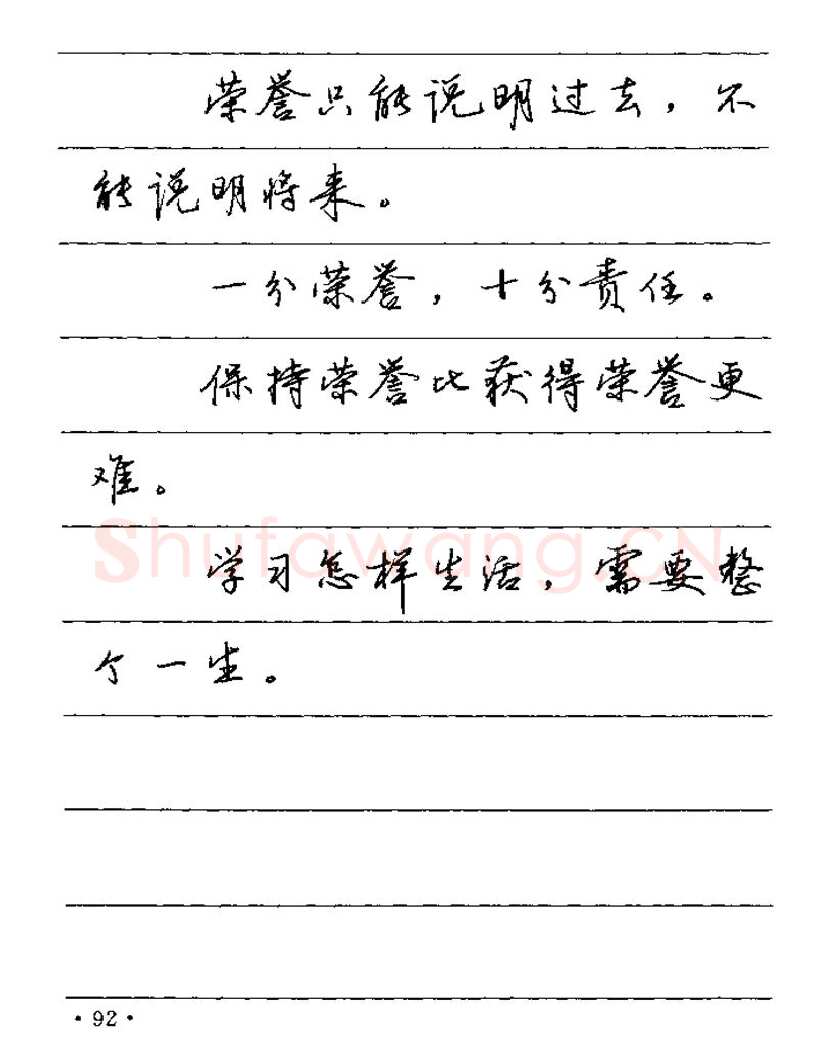 荣誉只能说明过去，不
能说明将来。
一分荣誉，十分责任。
保持荣誉比获得荣誉更
难。
Shufawang.CN
学习怎样生活，需要整
个一生。
·92·